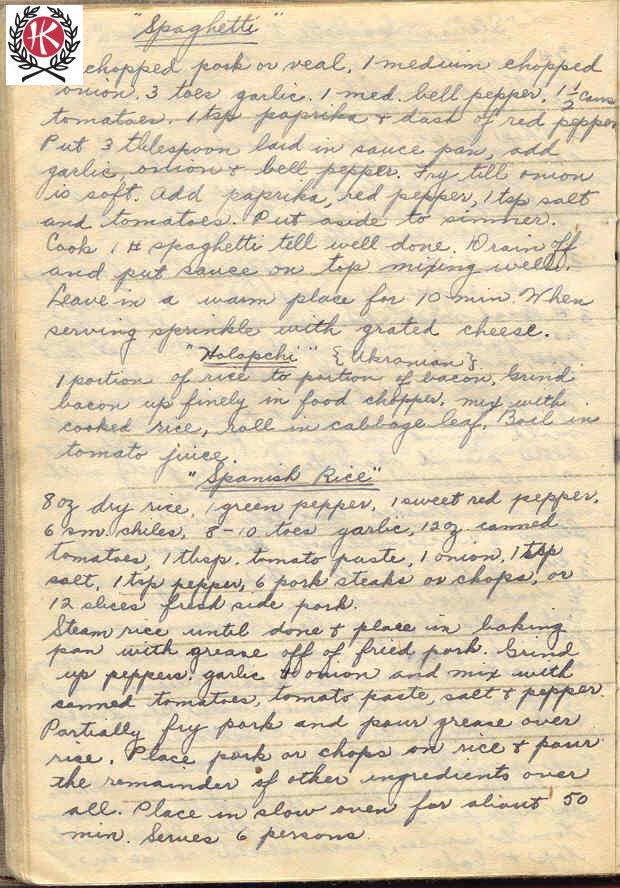 HK
"Spaghetti"
chopped pork or veal, 1 medium chopped
onion. 3 toes garlic. 1 med. bell pepper. 1 1/2 cans
tomatoes. 1 tsp paprika & dash of red pepper
Put 3 tblespoon laid in sauce pan, add
garlic, onion & bell pepper. Fry till onion
is soft. Add paprika, red pepper, 1 tsp salt
and tomatoes. Put aside to simmer.
Cook 1 # spaghetti tell well done. Drain off
and put sauce on top mixing well.
Leave in a warm place for 10 min. When
serving sprinkle with grated cheese.
"Holopchi" {Ukranian}
1 portion of rice to portion of bacon, Grind
bacon up finely in food chopper. mix with
cooked rice, roll in cabbage leaf. Boil in
tomato juice.
"Spanish Rice"
8 oz dry rice, 1 green pepper, 1 sweet red pepper,
6 sm. chiles, 8-10 toes garlic, 12 oz. canned
tomatoes, 1 tbsp. tomato paste, 1 onion, 1 tsp
salt, 1 tsp pepper, 6 pork steaks or chops, or
12 slices fresh side pork.
Steam rice until done & place in baking
pan with grease off of fried pork. Grind
up peppers, garlic & onion and mix with
canned tomatoes, tomato paste, salt & pepper.
Partially fry pork and pour grease over
rice. Place pork or chops on rice & pour
the remainder of other ingredients over
all. Place in slow oven for about 50
min. Serves 6 persons.